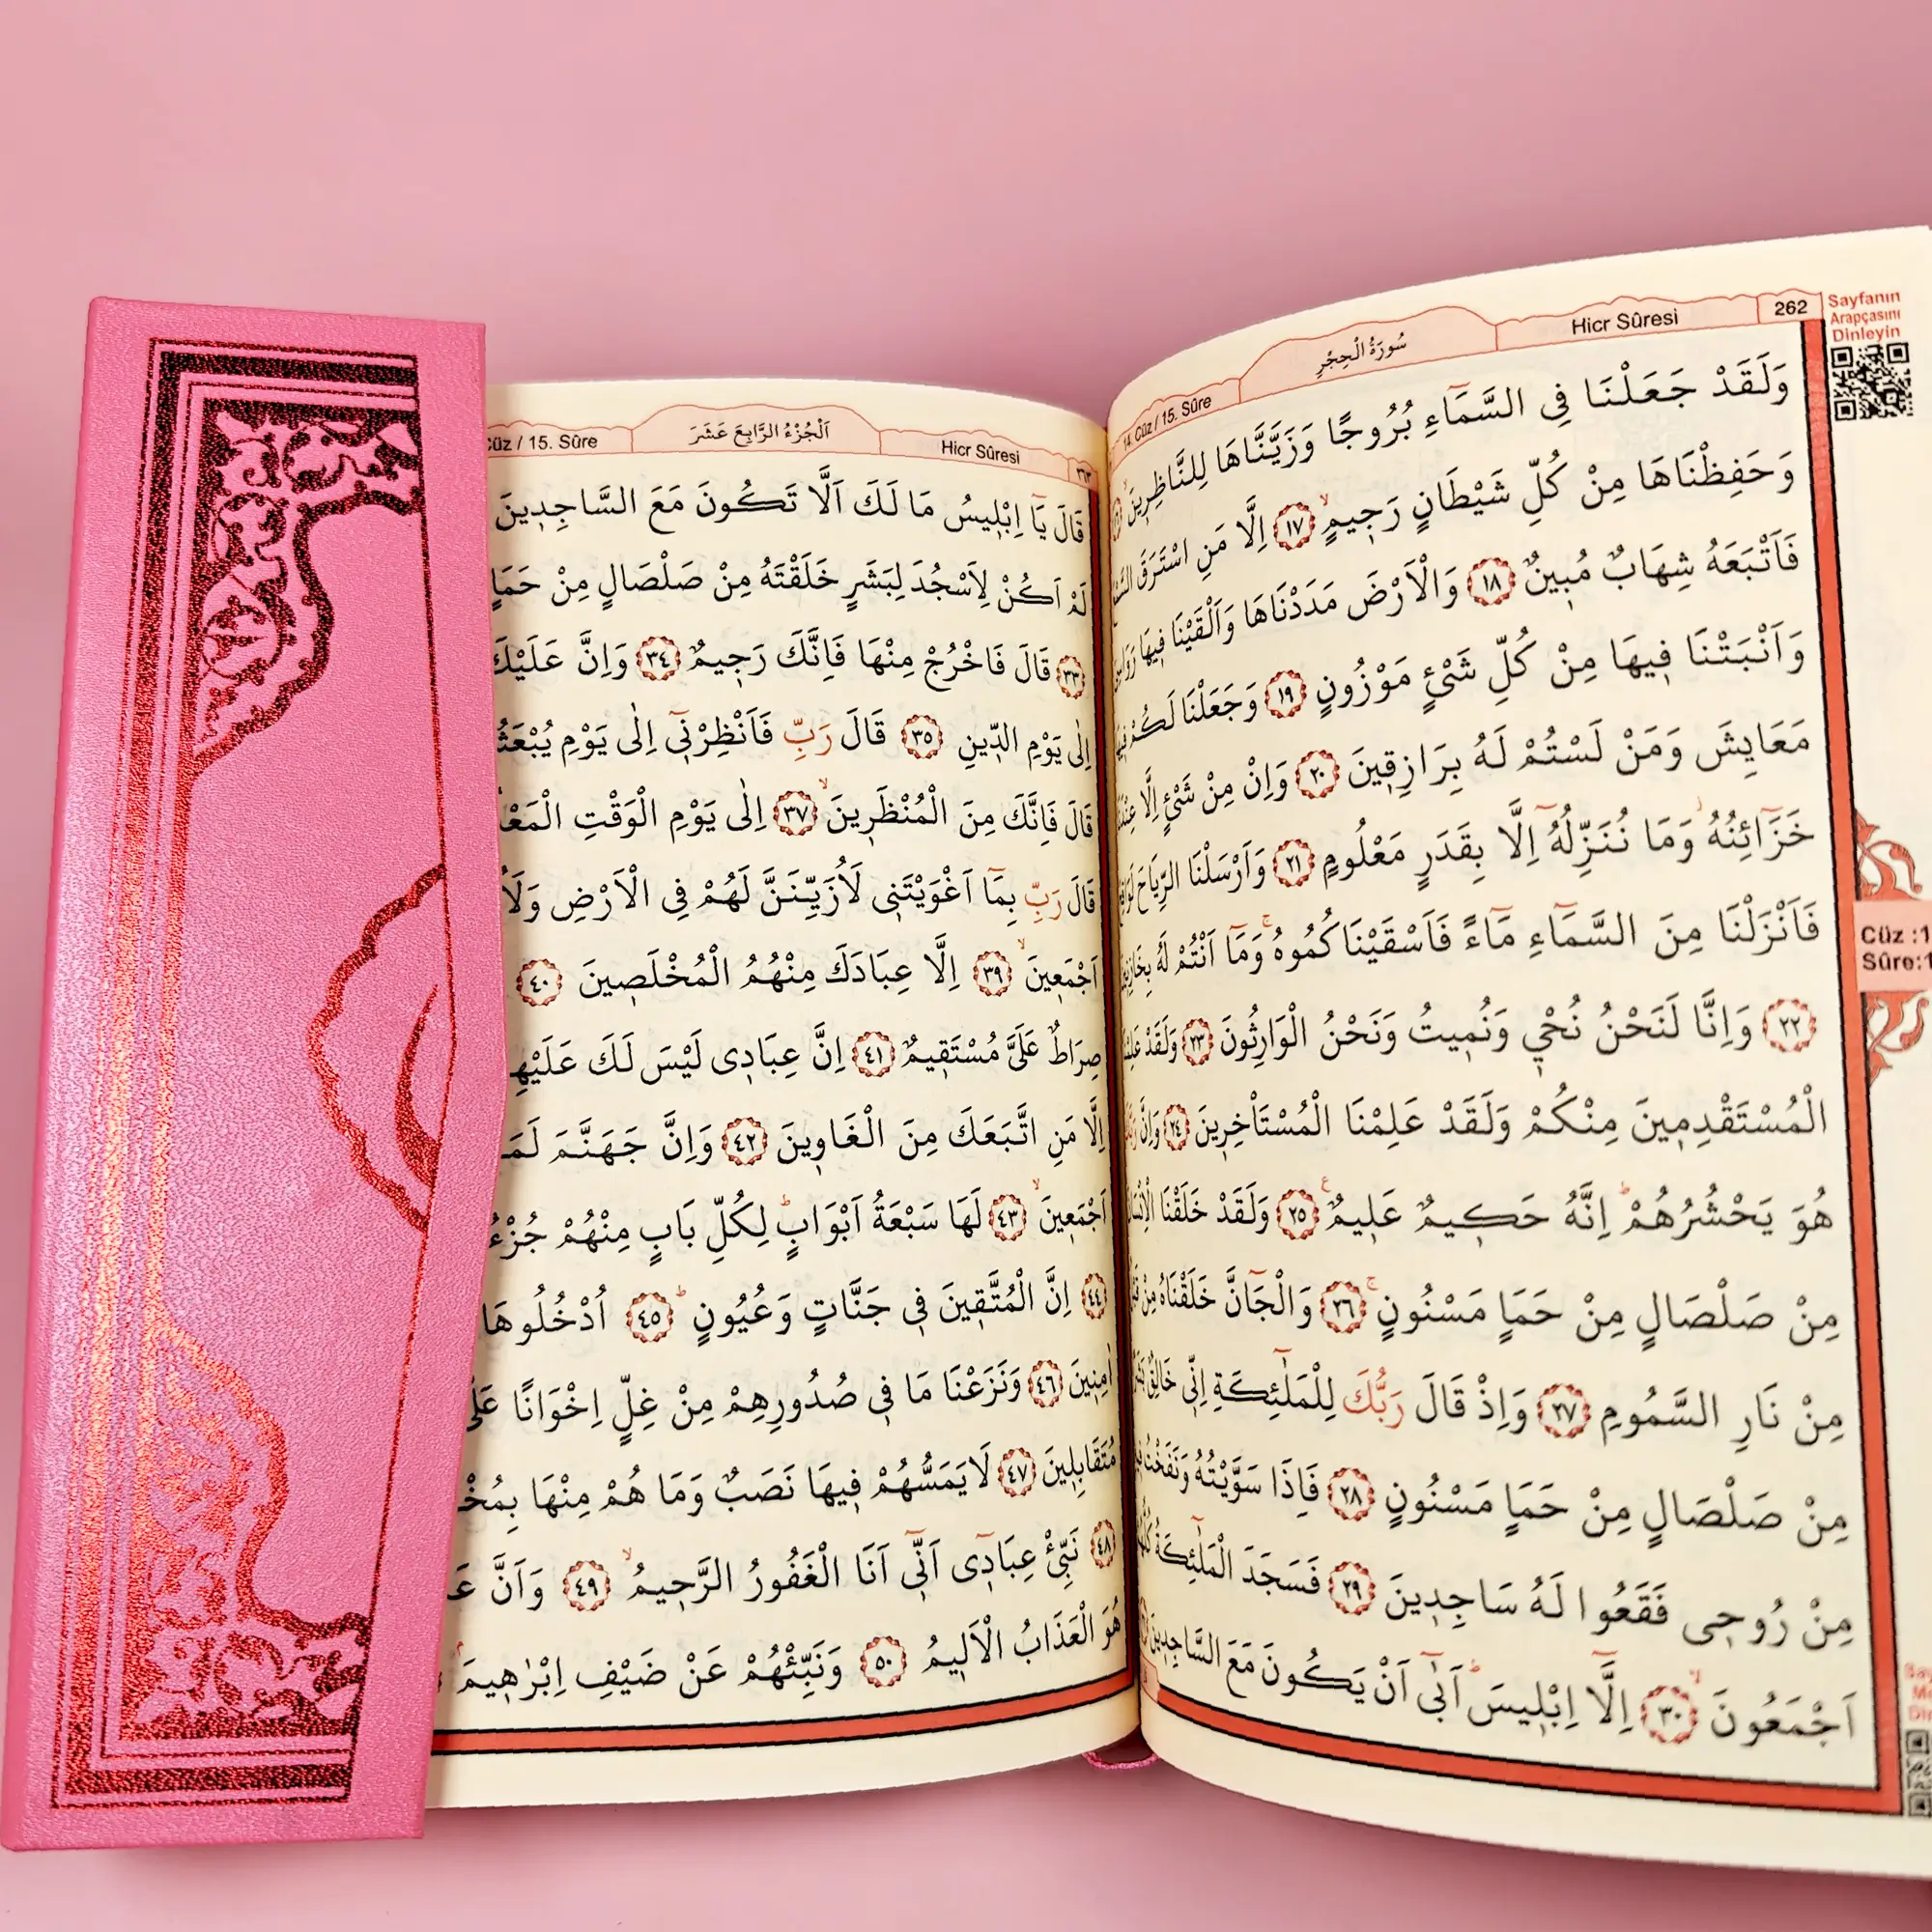 262
Hicr Sûresi
سُورَةُ الْحِجْرِ
14. Cüz / 15. Sûre
Sayfanın
Arapçasını
Dinleyin
وَلَقَدْ جَعَلْنَا فِي السَّمَآءِ بُرُوجًا وَزَيَّنَّاهَا لِلنَّاظِرِينَۙ
وَحَفِظْنَاهَا مِنْ كُلِّ شَيْطَانٍ رَجِيمٍۙ ﴿١٧﴾ اِلَّا مَنِ اسْتَرَقَ
فَاَتْبَعَهُ شِهَابٌ مُبِينٌ ﴿١٨﴾ وَالْاَرْضَ مَدَدْنَاهَا وَاَلْقَيْنَا فِيهَا
وَاَنْبَتْنَا فِيهَا مِنْ كُلِّ شَيْءٍ مَوْزُونٍ ﴿١٩﴾ وَجَعَلْنَا لَكُمْ
مَعَايِشَ وَمَنْ لَسْتُمْ لَهُ بِرَازِقِينَ ﴿٢٠﴾ وَاِنْ مِنْ شَيْءٍ اِلَّا
خَزَآئِنُهُۘ وَمَا نُنَزِّلُهُٓ اِلَّا بِقَدَرٍ مَعْلُومٍ ﴿٢١﴾ وَاَرْسَلْنَا الرِّيَاحَ
فَاَنْزَلْنَا مِنَ السَّمَآءِ مَآءً فَاَسْقَيْنَاكُمُوهُۚ وَمَآ اَنْتُمْ لَهُ
﴿٢٢﴾ وَاِنَّا لَنَحْنُ نُحْيِ وَنُمِيتُ وَنَحْنُ الْوَارِثُونَ ﴿٢٣﴾ وَلَقَدْ
الْمُسْتَقْدِمِينَ مِنْكُمْ وَلَقَدْ عَلِمْنَا الْمُسْتَاْخِرِينَ ﴿٢٤﴾ وَاِنَّ
هُوَ يَحْشُرُهُمْۜ اِنَّهُ حَكِيمٌ عَلِيمٌ ﴿٢٥﴾ وَلَقَدْ خَلَقْنَا
مِنْ صَلْصَالٍ مِنْ حَمَاٍ مَسْنُونٍۚ ﴿٢٦﴾ وَالْجَآنَّ خَلَقْنَاهُ مِنْ
مِنْ نَارِ السَّمُومِ ﴿٢٧﴾ وَاِذْ قَالَ رَبُّكَ لِلْمَلٰٓئِكَةِ اِنِّي خَالِقٌ
مِنْ صَلْصَالٍ مِنْ حَمَاٍ مَسْنُونٍ ﴿٢٨﴾ فَاِذَا سَوَّيْتُهُ وَنَفَخْتُ
مِنْ رُوحِي فَقَعُوا لَهُ سَاجِدِينَ ﴿٢٩﴾ فَسَجَدَ الْمَلٰٓئِكَةُ
اَجْمَعُونَۙ ﴿٣٠﴾ اِلَّآ اِبْلِيسَۜ اَبٰىٓ اَنْ يَكُونَ مَعَ السَّاجِدِينَ
Cüz :1
Sûre:1
٢٦٣
Hicr Sûresi
اَلْجُزْءُ الرَّابِعَ عَشَرَ
Cüz / 15. Sûre
قَالَ يَآ اِبْلِيسُ مَا لَكَ اَلَّا تَكُونَ مَعَ السَّاجِدِينَ
لَمْ اَكُنْ لِاَسْجُدَ لِبَشَرٍ خَلَقْتَهُ مِنْ صَلْصَالٍ مِنْ حَمَاٍ
﴿٣٣﴾ قَالَ فَاخْرُجْ مِنْهَا فَاِنَّكَ رَجِيمٌ ﴿٣٤﴾ وَاِنَّ عَلَيْكَ
اِلٰى يَوْمِ الدِّينِ ﴿٣٥﴾ قَالَ رَبِّ فَاَنْظِرْنِيٓ اِلٰى يَوْمِ
قَالَ فَاِنَّكَ مِنَ الْمُنْظَرِينَۙ ﴿٣٧﴾ اِلٰى يَوْمِ الْوَقْتِ
قَالَ رَبِّ بِمَآ اَغْوَيْتَنِي لَاُزَيِّنَنَّ لَهُمْ فِي الْاَرْضِ
اَجْمَعِينَۙ ﴿٣٩﴾ اِلَّا عِبَادَكَ مِنْهُمُ الْمُخْلَصِينَ ﴿٤٠﴾
صِرَاطٌ عَلَيَّ مُسْتَقِيمٌ ﴿٤١﴾ اِنَّ عِبَادِي لَيْسَ لَكَ
اِلَّا مَنِ اتَّبَعَكَ مِنَ الْغَاوِينَ ﴿٤٢﴾ وَاِنَّ جَهَنَّمَ
اَجْمَعِينَۙ ﴿٤٣﴾ لَهَا سَبْعَةُ اَبْوَابٍۜ لِكُلِّ بَابٍ مِنْهُمْ جُزْءٌ
﴿٤٤﴾ اِنَّ الْمُتَّقِينَ فِي جَنَّاتٍ وَعُيُونٍۜ ﴿٤٥﴾ اُدْخُلُوهَا
اٰمِنِينَ ﴿٤٦﴾ وَنَزَعْنَا مَا فِي صُدُورِهِمْ مِنْ غِلٍّ اِخْوَانًا
مُتَقَابِلِينَ ﴿٤٧﴾ لَا يَمَسُّهُمْ فِيهَا نَصَبٌ وَمَا هُمْ مِنْهَا
﴿٤٨﴾ نَبِّئْ عِبَادِيٓ اَنِّيٓ اَنَا الْغَفُورُ الرَّحِيمُۙ ﴿٤٩﴾ وَاَنَّ
هُوَ الْعَذَابُ الْاَلِيمُ ﴿٥٠﴾ وَنَبِّئْهُمْ عَنْ ضَيْفِ اِبْرٰهِيمَۢ